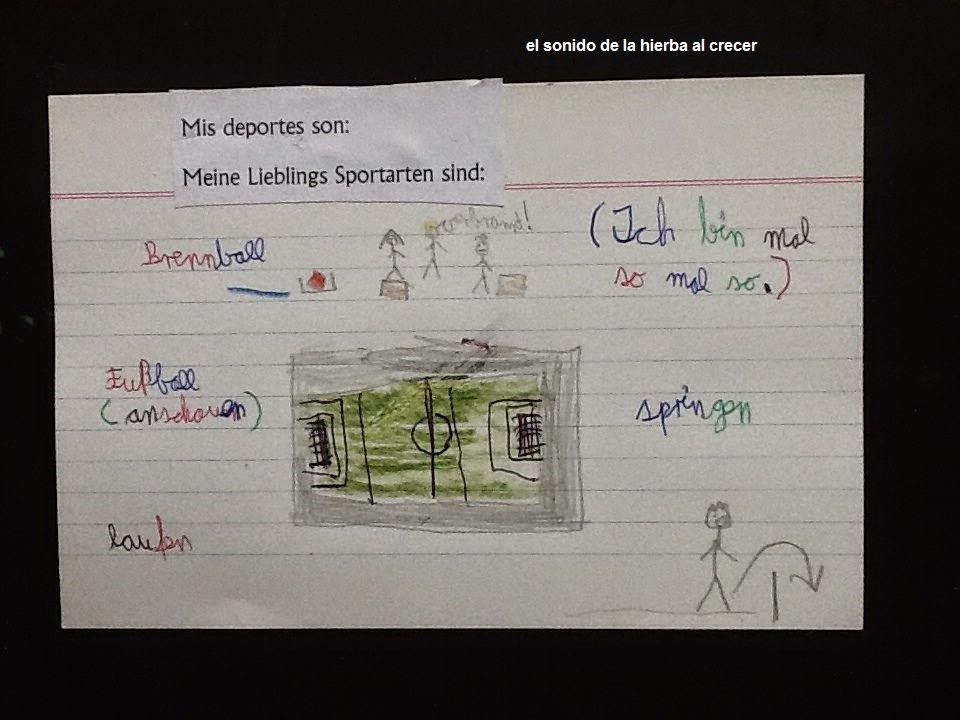 el sonido de la hierba al crecer
Mis deportes son:
Meine Lieblings Sportarten sind:
Brennball
verbrannt!
(Ich bin mal
so mal so.)
Fußball
(anschauen)
springen
laufen